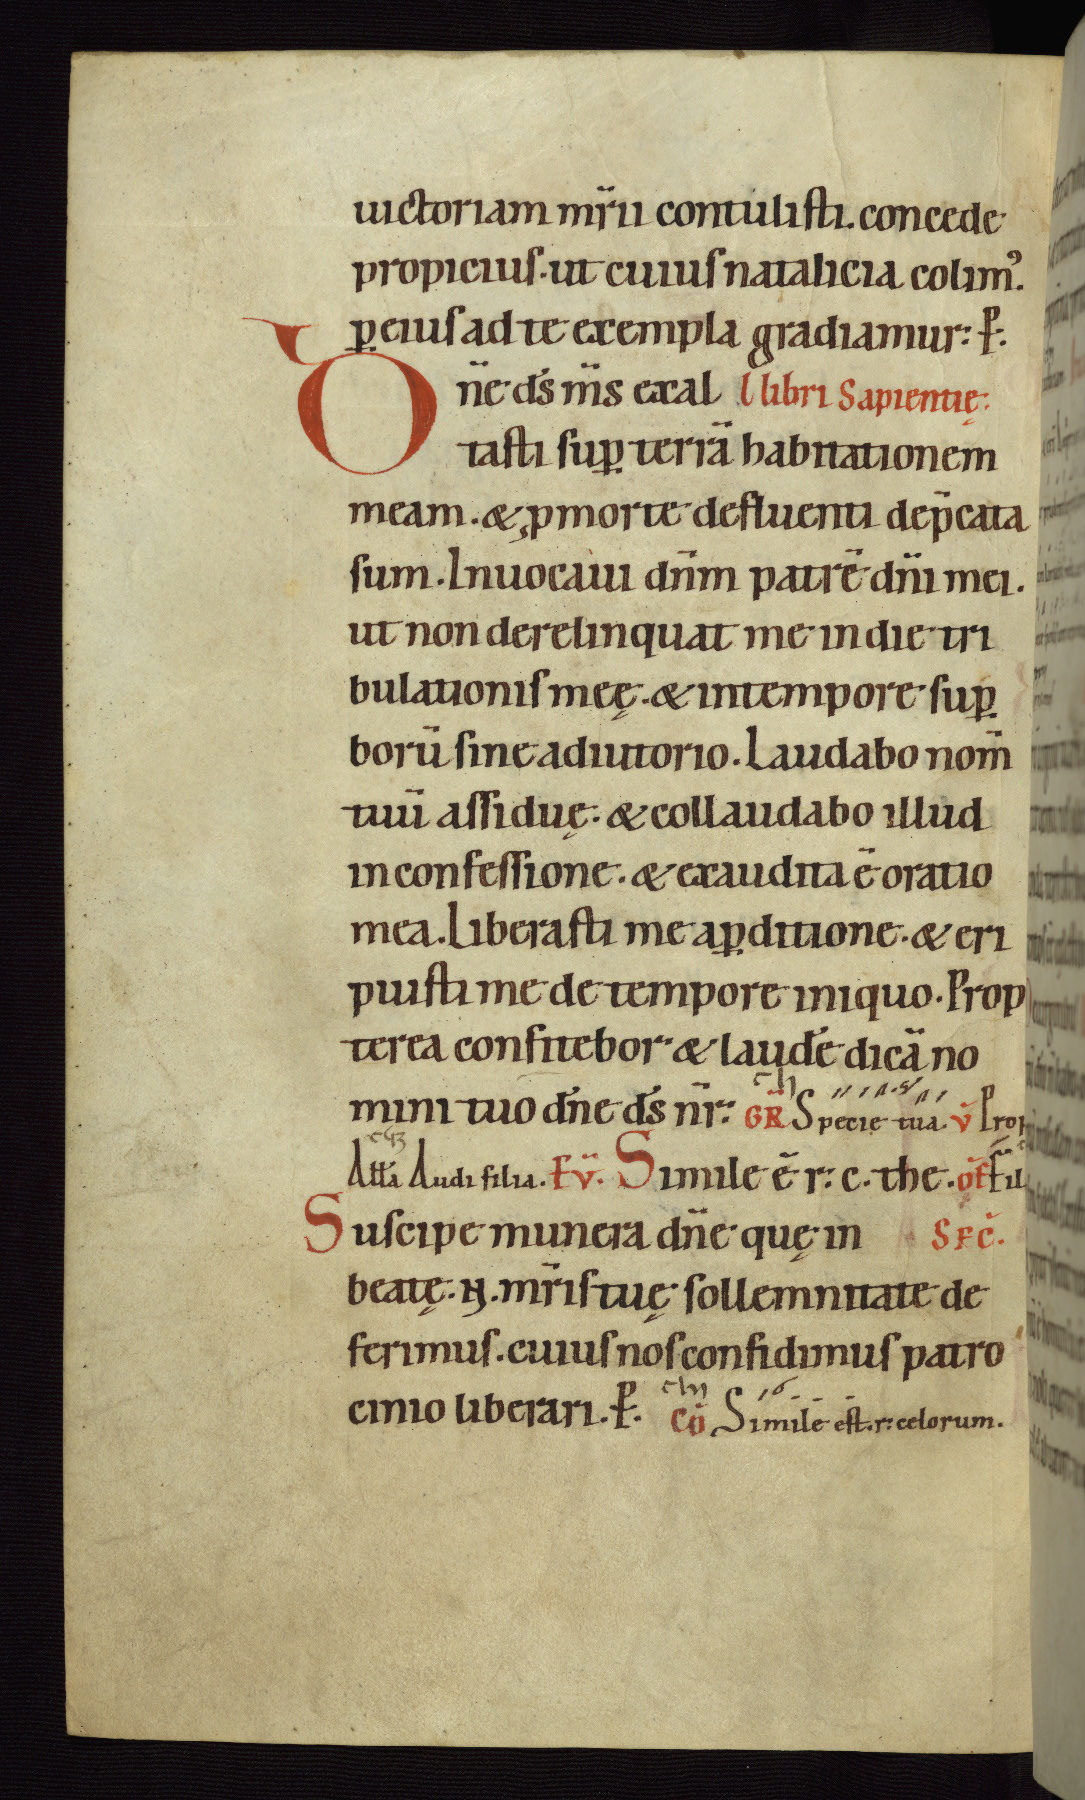 uictoriam mr̄ii contulisti. concede
propicius. ut cuius natalicia colim᷒.
ꝑ eius ad te exempla gradiamur: P̄.
Dn̄e ds̄ ms̄ exal L libri Sapientię:
tasti suꝑ terrā habitationem
meam. & ꝓ morte defluenti dep̄cata
sum. Inuocaui dn̄m patrē dn̄i mei.
ut non derelinquat me in die tri
bulationis meę. & in tempore suꝑ
borū sine adiutorio. Laudabo nom̄
tuū assiduę. & collaudabo illud
in confessione. & exaudita ē oratio
mea. Liberasti me a ꝑditione. & eri
puisti me de tempore iniquo. Prop
terea confitebor & laudē dicā no
mini tuo dn̄e ds̄ nr̄: GR̄ Specie tua. v̄ Prop
Atta Audi filia. Ev̄. Simile ē r: c. the. of̄ Fil
Suscipe munera dn̄e quę in SEC̄.
beatę. N. mr̄is tuę sollemnitate de
ferimus. cuius nos confidimus patro
cinio liberari. P̄. CŌ Simile est. r: celorum.